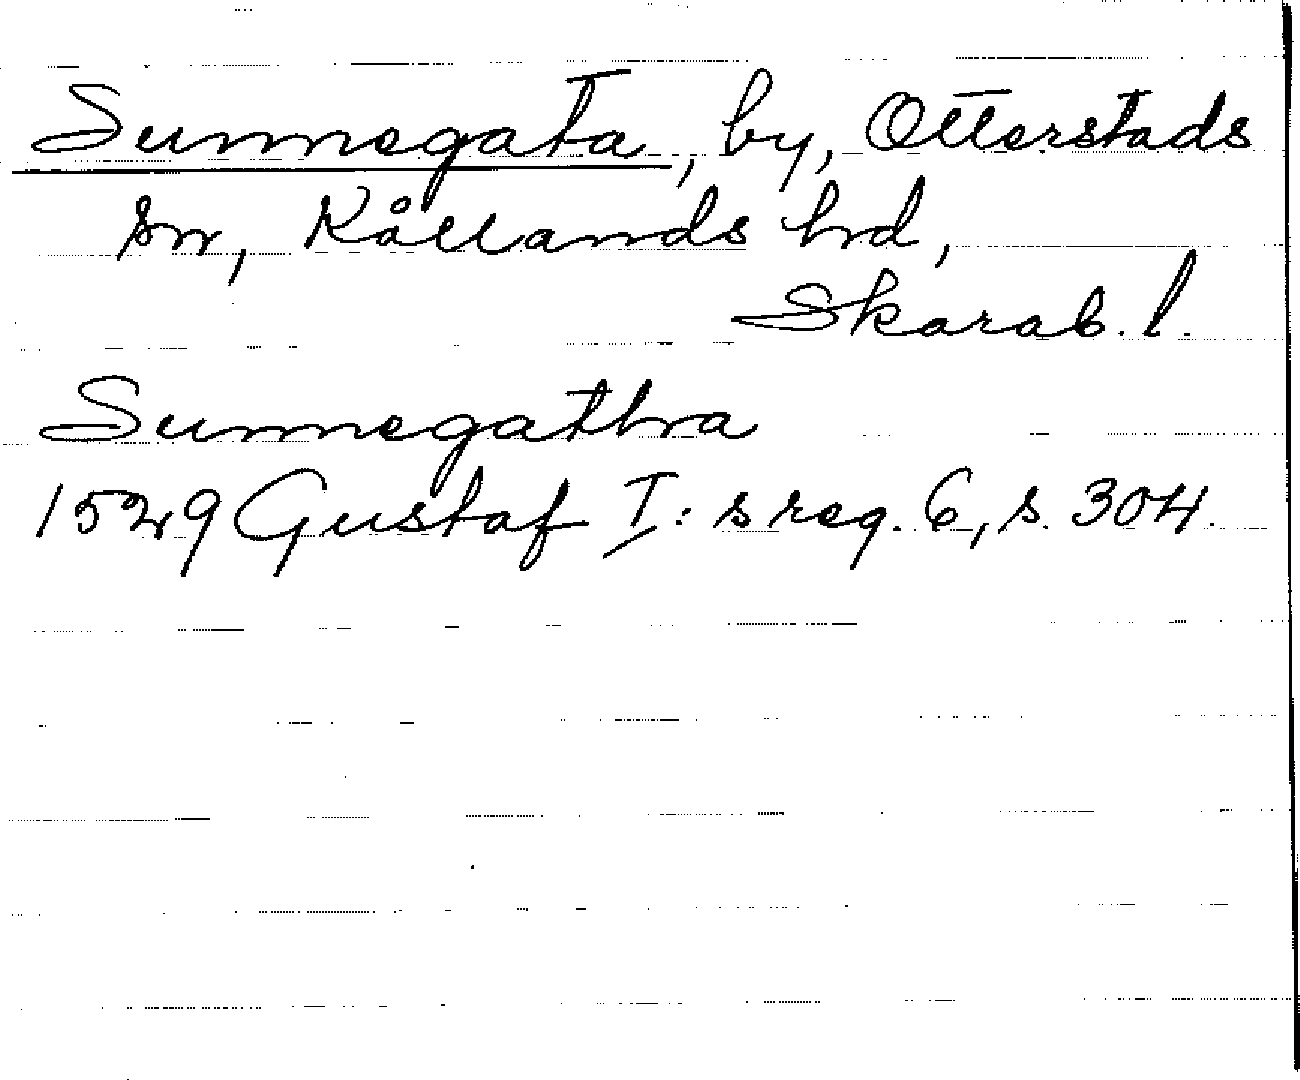 Sunnegata, by, Otterstads
sn, Kållands hrd,
Skarab. l.
Sunnegathra
1529 Gustaf I: s reg. 6, s. 304.